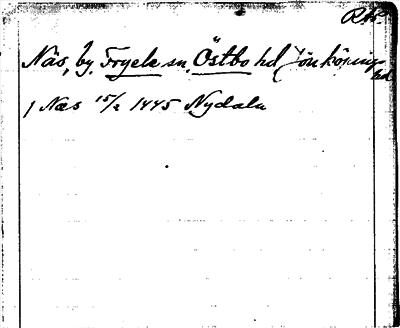 Näs, by, Fryele sn, Östbo hd Jönköpings
1 Næs 15/2 1445 Nydala